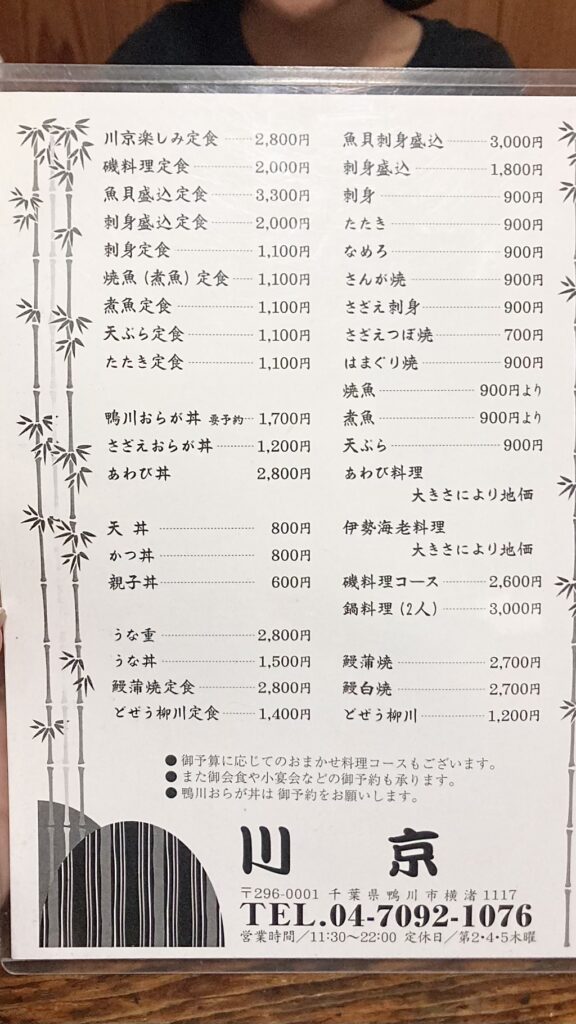 川京楽しみ定食 2,800円
磯料理定食 2,000円
魚貝盛込定食 3,300円
刺身盛込定食 2,000円
刺身定食 1,100円
焼魚(煮魚)定食 1,100円
煮魚定食 1,100円
天ぷら定食 1,100円
たたき定食 1,100円
鴨川おらが丼 要予約 1,700円
さざえおらが丼 1,200円
あわび丼 2,800円
天丼 800円
かつ丼 800円
親子丼 600円
うな重 2,800円
うな丼 1,500円
鰻蒲焼定食 2,800円
どぜう柳川定食 1,400円
魚貝刺身盛込 3,000円
刺身盛込 1,800円
刺身 900円
たたき 900円
なめろ 900円
さんが焼 900円
さざえ刺身 900円
さざえつぼ焼 700円
はまぐり焼 900円
焼魚 900円より
煮魚 900円より
天ぷら 900円
あわび料理
大きさにより地価
伊勢海老料理
大きさにより地価
磯料理コース 2,600円
鍋料理(2人) 3,000円
鰻蒲焼 2,700円
鰻白焼 2,700円
どぜう柳川 1,200円
●御予算に応じてのおまかせ料理コースもございます。
●また御会食や小宴会などの御予約も承ります。
●鴨川おらが丼は御予約をお願いします。
川京
〒296-0001 千葉県鴨川市横渚1117
TEL.04-7092-1076
営業時間/11:30〜22:00 定休日/第2・4・5木曜